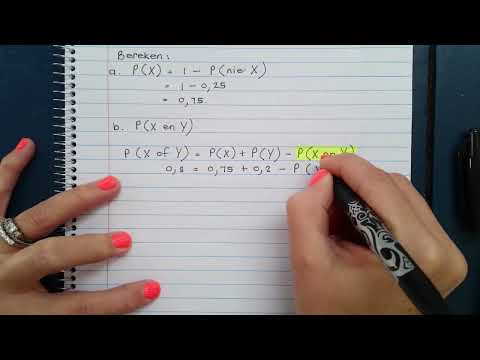 Bereken:
a. P(X) = 1 - P(nie X)
= 1 - 0,25
= 0,75.
b. P(X en Y)
P(X of Y) = P(X) + P(Y) - P(X en Y)
0,8 = 0,75 + 0,2 - P(